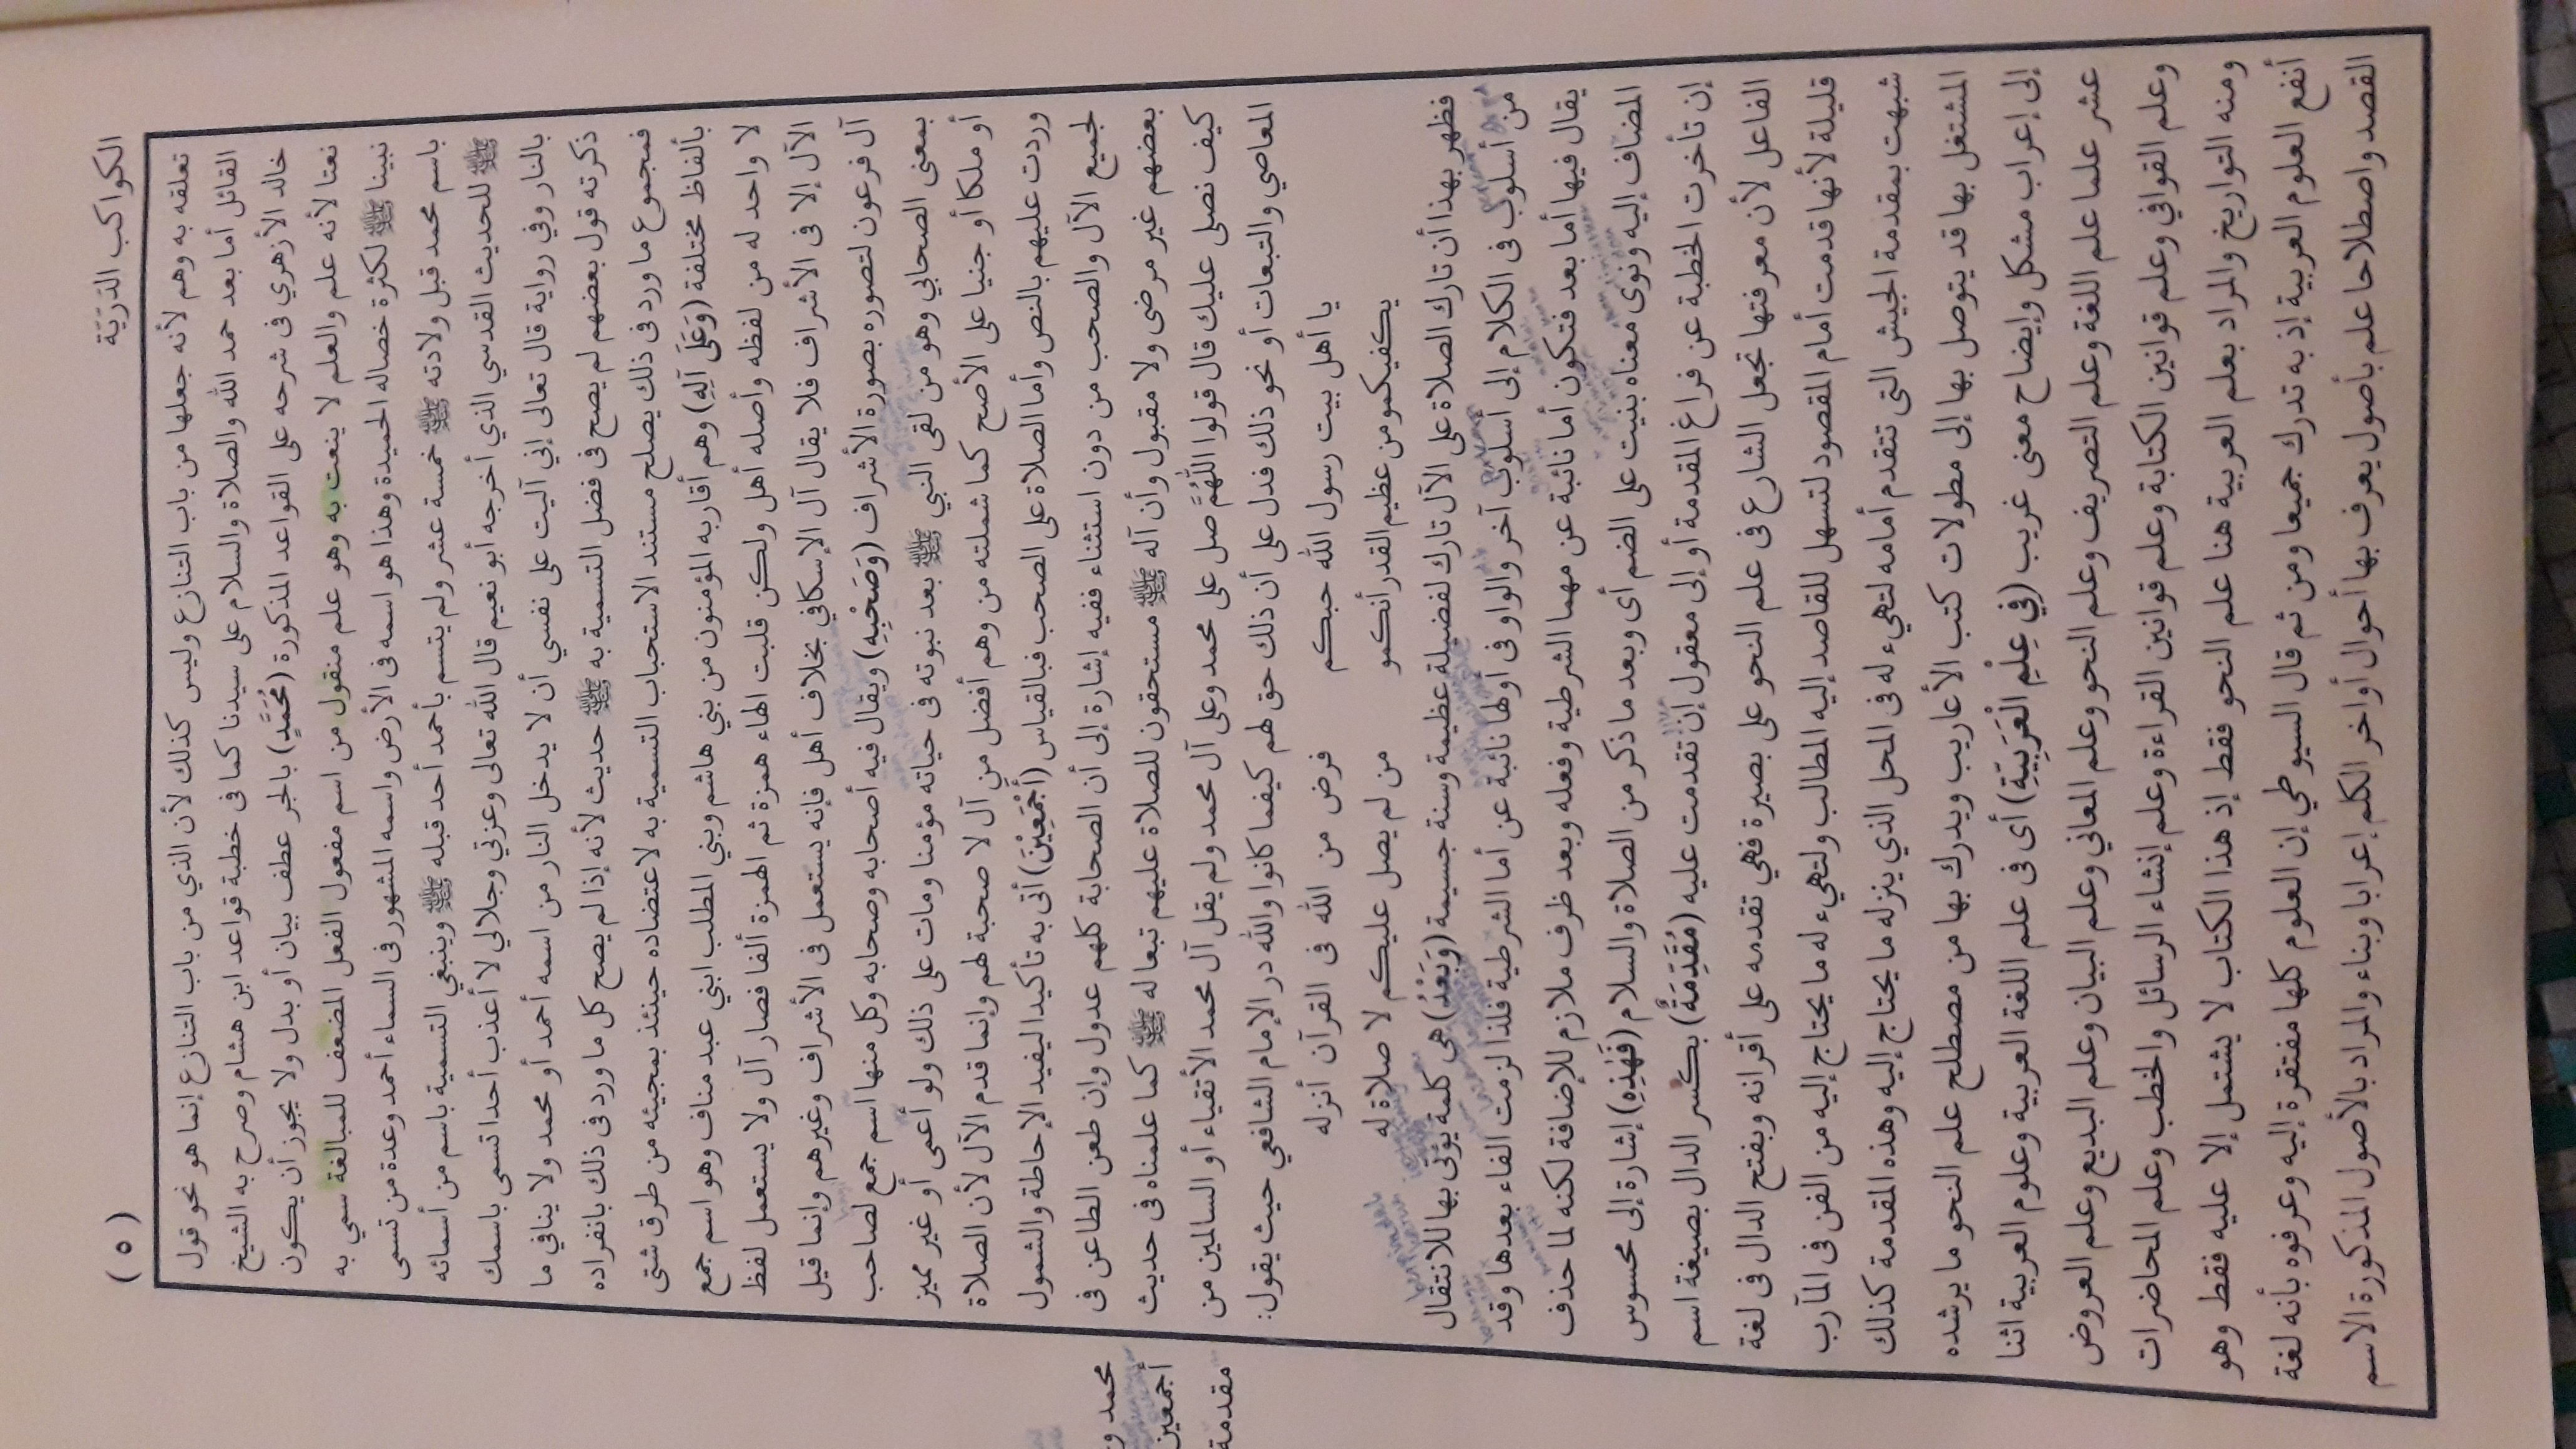 الكواكب الدرية
(٥)
تعلقه به وهم لأنه جعلها من باب التنازع وليس كذلك لأن الذي من باب التنازع إنما هو نحو قول
القائل أما بعد حمد الله والصلاة والسلام على سيدنا كما فى خطبة قواعد ابن هشام وصرح به الشيخ
خالد الأزهري فى شرحه على القواعد المذكورة (مُحَمَّدٍ) بالجر عطف بيان أو بدل ولا يجوز أن يكون
نعتا لأنه علم والعلم لا ينعت به وهو علم منقول من اسم مفعول الفعل المضعف للمبالغة سمي به
نبينا ﷺ لكثرة خصاله الحميدة وهذا هو اسمه فى الأرض واسمه المشهور فى السماء أحمد وعدة من تسمى
باسم محمد قبل ولادته ﷺ خمسة عشر ولم يتسم بأحمد أحد قبله ﷺ وينبغي التسمية باسم من أسمائه
ﷺ للحديث القدسي الذي أخرجه أبو نعيم قال الله تعالى وعزتي وجلالي لا أعذب أحدا تسمى باسمك
بالنار وفي رواية قال تعالى إني آليت على نفسي أن لا يدخل النار من اسمه أحمد أو محمد ولا ينافي ما
ذكرته قول بعضهم لم يصح فى فضل التسمية به ﷺ حديث لأنه إذا لم يصح كل ما ورد فى ذلك بانفراده
فمجموع ما ورد فى ذلك يصلح مستند الاستحباب التسمية به لاعتضاده حينئذ بمجيئه من طرق شتى
بألفاظ مختلفة (وَعَلَى آلِهِ) وهم أقاربه المؤمنون من بني هاشم وبني المطلب ابني عبد مناف وهو اسم جمع
لا واحد له من لفظه وأصله أهل ولكن قلبت الهاء همزة ثم الهمزة ألفا فصار آل ولا يستعمل لفظ
الآل إلا فى الأشراف فلا يقال آل الإسكافي بخلاف أهل فإنه يستعمل فى الأشراف وغيرهم وإنما قيل
آل فرعون لتصوره بصورة الأشراف (وَصَحْبِهِ) ويقال فيه أصحابه وصحابه وكل منها اسم جمع لصاحب
بمعنى الصحابي وهو من لقى النبي ﷺ بعد نبوته فى حياته مؤمنا ومات على ذلك ولو أعمى أو غير مميز
أو ملكا أو جنيا على الأصح كما شملته من وهم أفضل من آل لا صحبة لهم وإنما قدم الآل لأن الصلاة
وردت عليهم بالنص وأما الصلاة على الصحب فبالقياس (أَجْمَعِيْنَ) أتى به تأكيدا ليفيد الإحاطة والشمول
لجميع الآل والصحب من دون استثناء ففيه إشارة إلى أن الصحابة كلهم عدول وإن طعن الطاعن فى
بعضهم غير مرضى ولا مقبول وأن آله ﷺ مستحقون للصلاة عليهم تبعا له ﷺ كما علمناه فى حديث
كيف نصلى عليك قال قولوا اللّٰهُمَّ صل على محمد وعلى آل محمد ولم يقل آل محمد الأتقياء أو السالمين من
المعاصي والتبعات أو نحو ذلك فدل على أن ذلك حق لهم كيفما كانوا والله در الإمام الشافعي حيث يقول:
يا أهل بيت رسول الله حبكم فرض من الله فى القرآن أنزله
يكفيكمو من عظيم القدر أنكمو من لم يصل عليكم لا صلاة له
فظهر بهذا أن تارك الصلاة على الآل تارك لفضيلة عظيمة وسنة جسيمة (وَبَعْدُ) هى كلمة يؤتى بها للانتقال
من أسلوب فى الكلام إلى أسلوب آخر والواو فى أولها نائبة عن أما الشرطية فلذا لزمت الفاء بعدها وقد
يقال فيها أما بعد فتكون أما نائبة عن مهما الشرطية وفعله وبعد ظرف ملازم للإضافة لكنه لما حذف
المضاف إليه ونوى معناه بنيت على الضم أى وبعد ما ذكر من الصلاة والسلام (فَهٰذِهِ) إشارة إلى محسوس
إن تأخرت الخطبة عن فراغ المقدمة أو إلى معقول إن تقدمت عليه (مُقَدِّمَةٌ) بكسر الدال بصيغة اسم
الفاعل لأن معرفتها تجعل الشارع فى علم النحو على بصيرة فهي تقدمه على أقرانه وبفتح الدال فى لغة
قليلة لأنها قدمت أمام المقصود لتسهل للقاصد إليه المطالب ولتهيء له ما يحتاج إليه من الفن فى المآرب
شبهت بمقدمة الجيش التى تتقدم أمامه لتهيء له فى المحل الذي ينزله ما يحتاج إليه وهذه المقدمة كذلك
المشتغل بها قد يتوصل بها إلى مطولات كتب الأعاريب ويدرك بها من مصطلح علم النحو ما يرشده
إلى إعراب مشكل وإيضاح معنى غريب (فِي عِلْمِ الْعَرَبِيَّةِ) أى فى علم اللغة العربية وعلوم العربية اثنا
عشر علما علم اللغة وعلم التصريف وعلم النحو وعلم المعاني وعلم البيان وعلم البديع وعلم العروض
وعلم القوافي وعلم قوانين الكتابة وعلم قوانين القراءة وعلم إنشاء الرسائل والخطب وعلم المحاضرات
ومنه التواريخ والمراد بعلم العربية هنا علم النحو فقط إذ هذا الكتاب لا يشتمل إلا عليه فقط وهو
أنفع العلوم العربية إذ به تدرك جميعا ومن ثم قال السيوطي إن العلوم كلها مفتقرة إليه وعرفوه بأنه لغة
القصد واصطلاحا علم بأصول يعرف بها أحوال أواخر الكلم إعرابا وبناء والمراد بالأصول المذكورة الاسم
محمد و
أجمعين
مقدمة